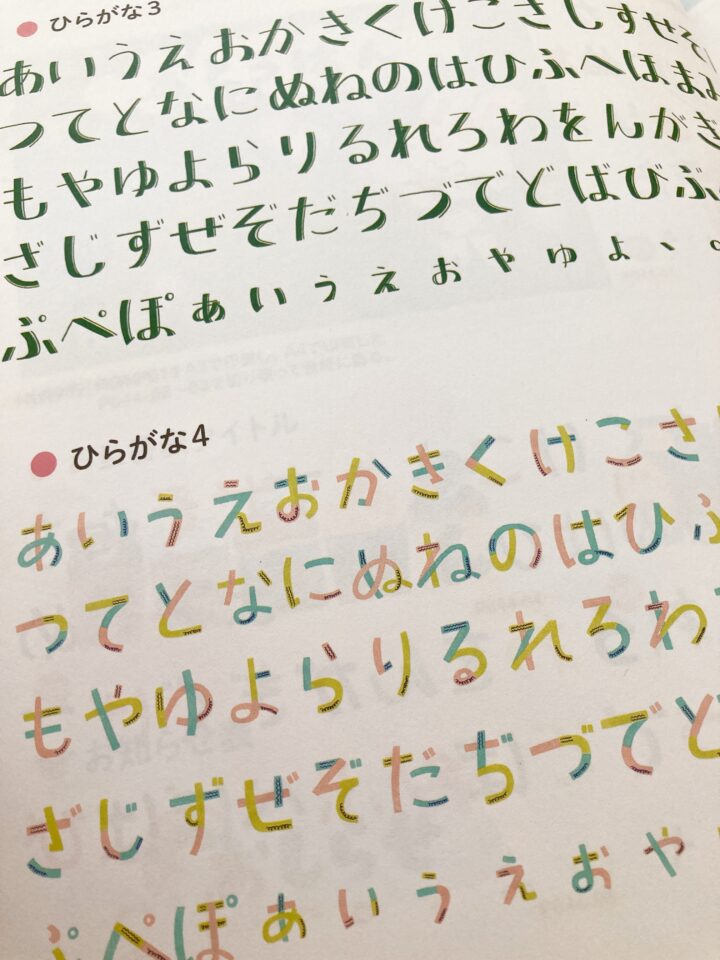 ひらがな3
あいうえおかきくけこさしすせそ
つてとなにぬねのはひふへほまみ
もやゆよらりるれろわをんがぎ
ざじずぜぞだぢづでどばびぶ
ぷぺぽぁぃぅぇぉゃゅょ、。
ひらがな4
あいうえおかきくけこさ
つてとなにぬねのはひ
もやゆよらりるれろわ
ざじずぜぞだぢづでど
ぷぺぽぁぃぅぇぉゃ